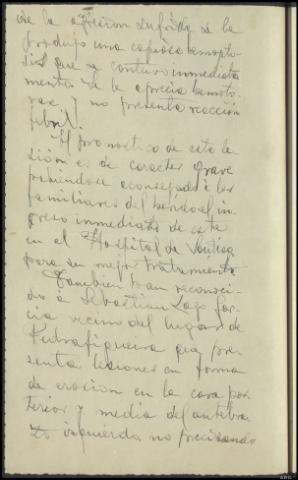 de la afeccion sufrida se la
produjo una copiosa hemopto-
sis que se contuvo inmediata
mente. Se le aprecia hemoto-
rax y no presenta reacción
febril.
El pronostico de esta le
sión es de caracter grave
habiendose aconsejado a los
familiares del lesionado in
greso inmediato de este
en el Hospital de Santiago
para su mejor tratamiento
Tambien han reconoci-
do a Sebastian Lago Gar-
cia vecino del lugar de
Pedrafigueira que pre-
senta lesiones en forma
de erosión en la cara pos
terior y media del antebra
zo izquierdo no precisando